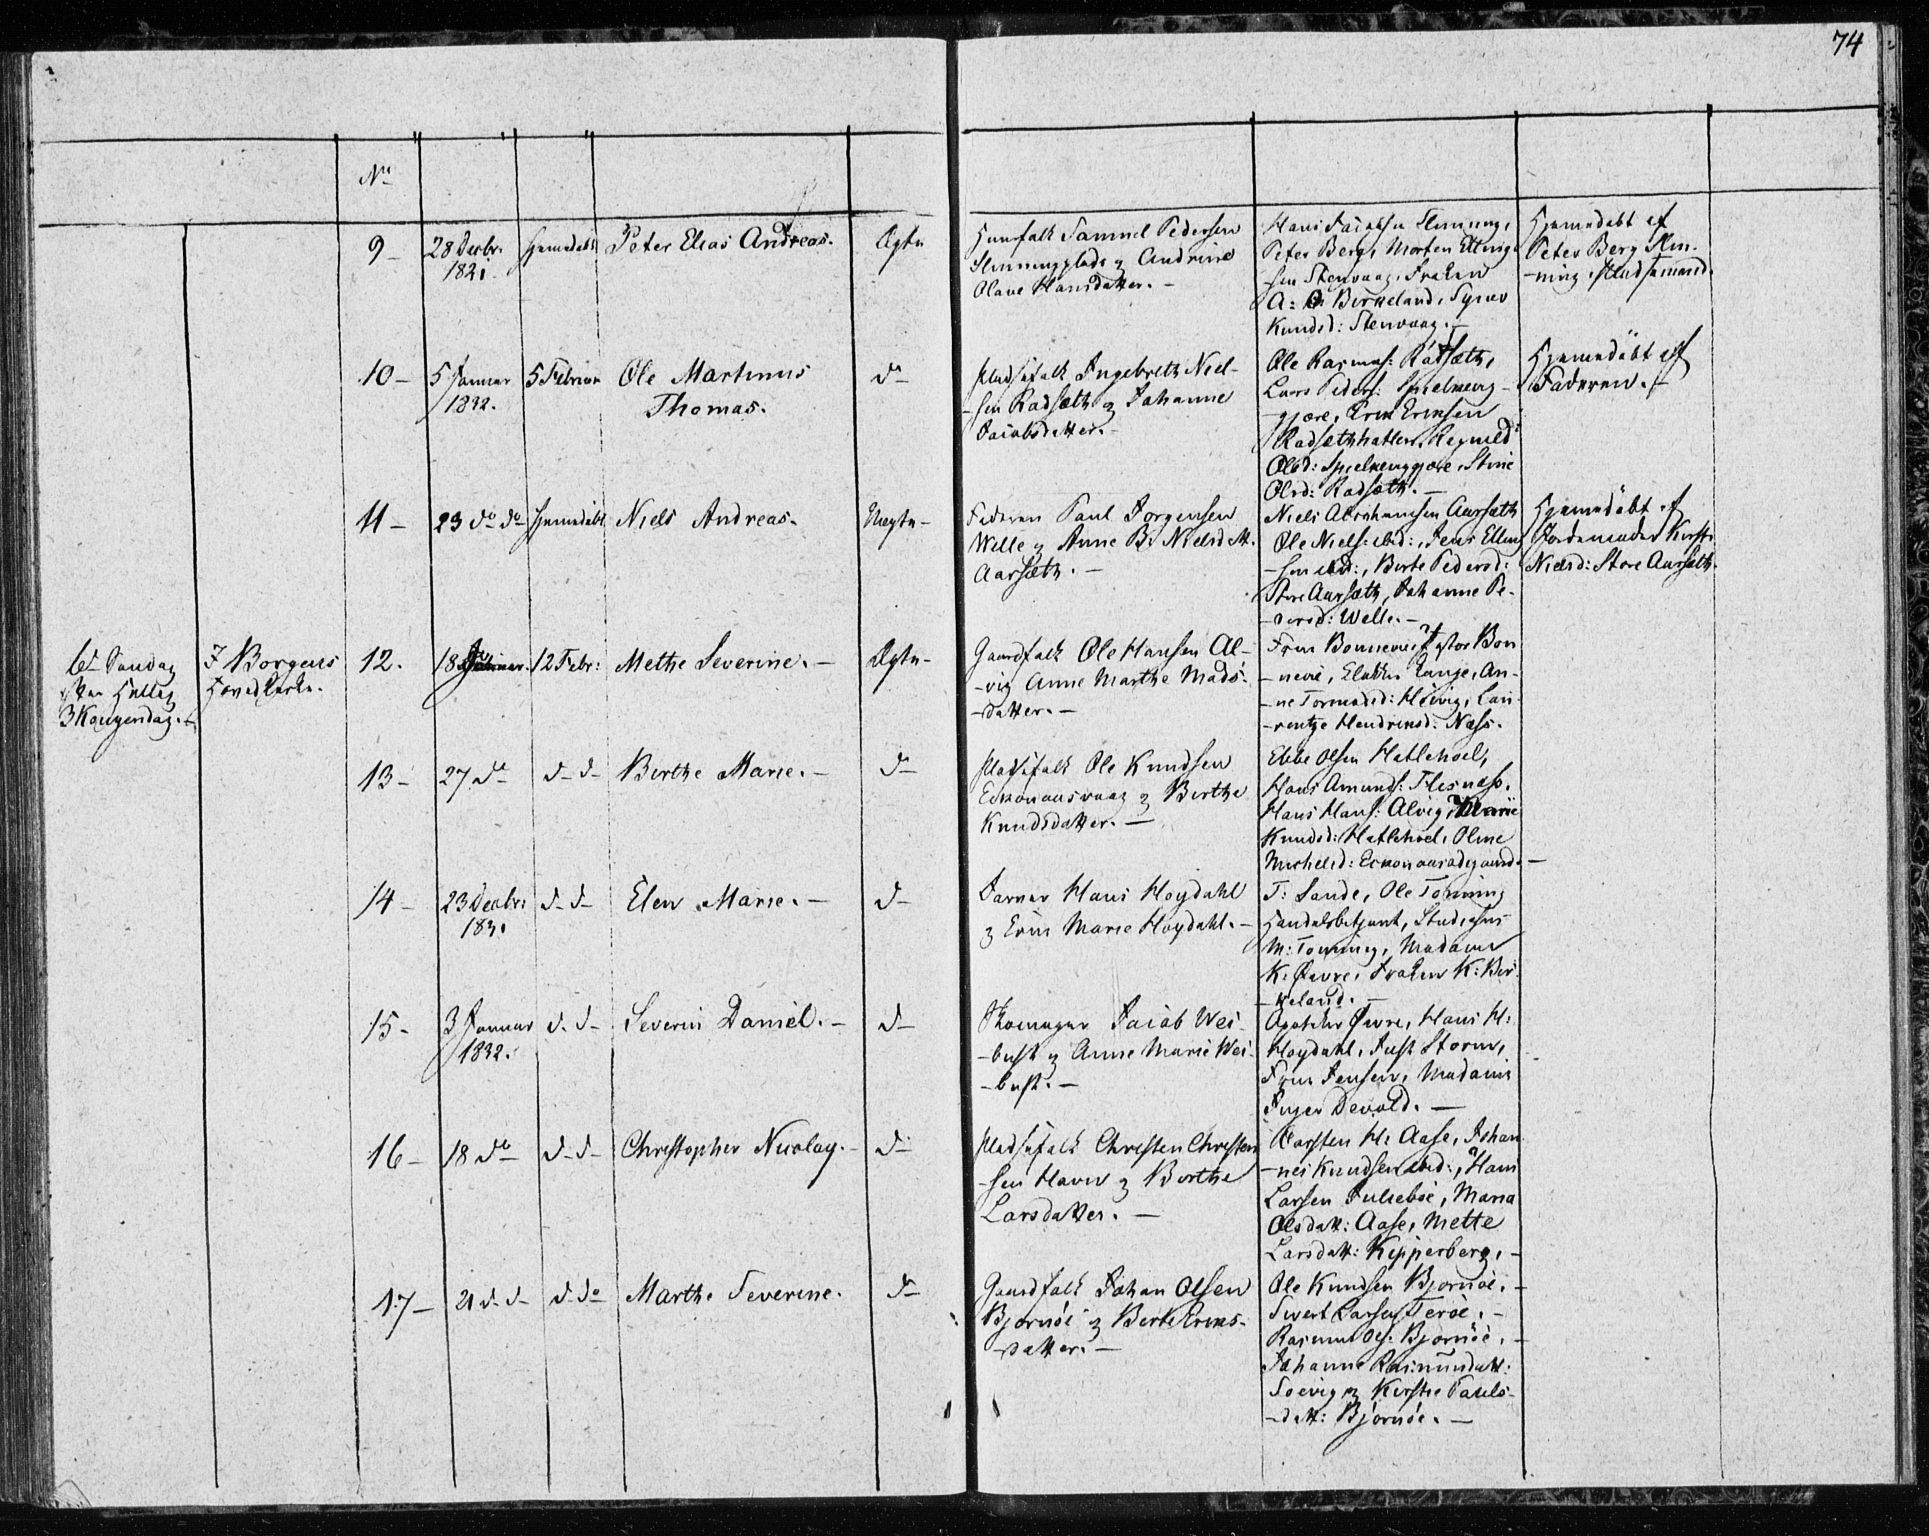 74
No
9-
28 Decbr:
1831.
Hjemedøbt
Peter Elias Andreas.
Ægte
Huusfolk Samuel Pedersen
Slinningplads og Andrine
Olave Hansdatter. -
Hans Jacobsen Slinning,
Peter Berg, Morten Elling-
sen Stenvaag, Frøken
A: Birkeland, Syner
Knudsd: Stenvaag. -
Hjemedøbt af
Peter Berg Slin-
-ning Pladsemand.
10-
5 Januar
1832.
5 Februar
Ole Martinus
Thomas.
do
Pladsefolk Ingebreth Niel-
-sen Radsæth og Johanne
Jacobsdatter. -
Ole Rasmus: Radsæth,
Lars Peders: Spielkevig-
-gjære, Erik Eriksen
Radsæthhatlen, Ragnild
Olsd: Spielkeviggjære, Stine
Olsd: Radsæth. -
Hjemedöbt af
Faderen. -
11-
23 do do
Hjemedøbt
Niels Andreas.
Uægte-
Faderen Paul Jørgensen
Welle og Anne B: Nielsdatt.
Aarsæth. -
Niels Abrahamsen Aarsæth
Ole Niels: ibid:, Jens Elling
-sen ibid:, Berte Pedersd:
Store Aarsæth, Johanne Pe-
-dersd: Welle. -
Hjemedøbt af
Jordemoder Kirsti
Nielsd: Store Aarsæth.
6te Sondag
efter Hellig
3 Kongersdag.
I Borgens
Hovedkirke.
12.
18 Januar.
12 Febr:
Methe Severine. -
Ægte-
Gaardfolk Ole Hansen Al-
-vig Anne Marthe Mads-
-datter. -
Frue Bonnevie, Pastor Bon
-nevie, Elukken Lange, An-
-ne Tormodsd: Høivig, Lau-
-rentze Hendriksd: Næss.
13-
27 do
d- d-
Birthe Marie. -
d-
Pladsefolk Ole Knudsen
Eckonaasvaag og Berthe
Knudsdatter. -
Ebbe Olsen Hatlehoel,
Hans Amunds: Flisnæss,
Hans Hans: Alvig, Marie
Knudsd: Hatlehoel, Oline
Michelsd: Eckonaasødegaard. -
14-
23 Decbr:
1831
d- d-
Elen Marie. -
d-
Farver Hans Høydahl
og Erik Marie Høydahl. -
T: Sande, Ole Tønning
Handelsbetjent, Studiosus
M: Tønning, Madame
K: Øwre, Frøken K: Bir-
-keland. -
15-
3 Januar
1832.
d- d-
Severin Daniel. -
d-
Skomager Jacob Wei-
-bust og Anne Marie Wei-
-bust. -
Apoteker Øwre, Hans H:
Høydahl, Just Storm,
Frue Jensen, Madame
Inger Devold. -
16-
18 do
d- d-
Christopher Nicolay. -
d-
Pladsefolk Christen Christen
-sen Havn og Berthe
Larsdatter. -
Karsten H: Aase, Johan
-nes Knudsen ibid:, Hans
Larsen Juliebøe, Maria
Olsdatt: Aase, Mette
Larsdatt: Kipperberg, -
17-
21 d- d-
d- do
Marthe Severine.
d-
Gaardfolk Johan Olsen
Bjørnöe og Berte Eriks-
-datter. -
Ole Knudsen Bjørnöe, -
Sivert Larsen Terøe. -
Rasmus Ols: Bjørnöe, -
Johanne Rasmusdatt:
Soevig og Kirstie Pauls-
-datt: Bjørnöe. -